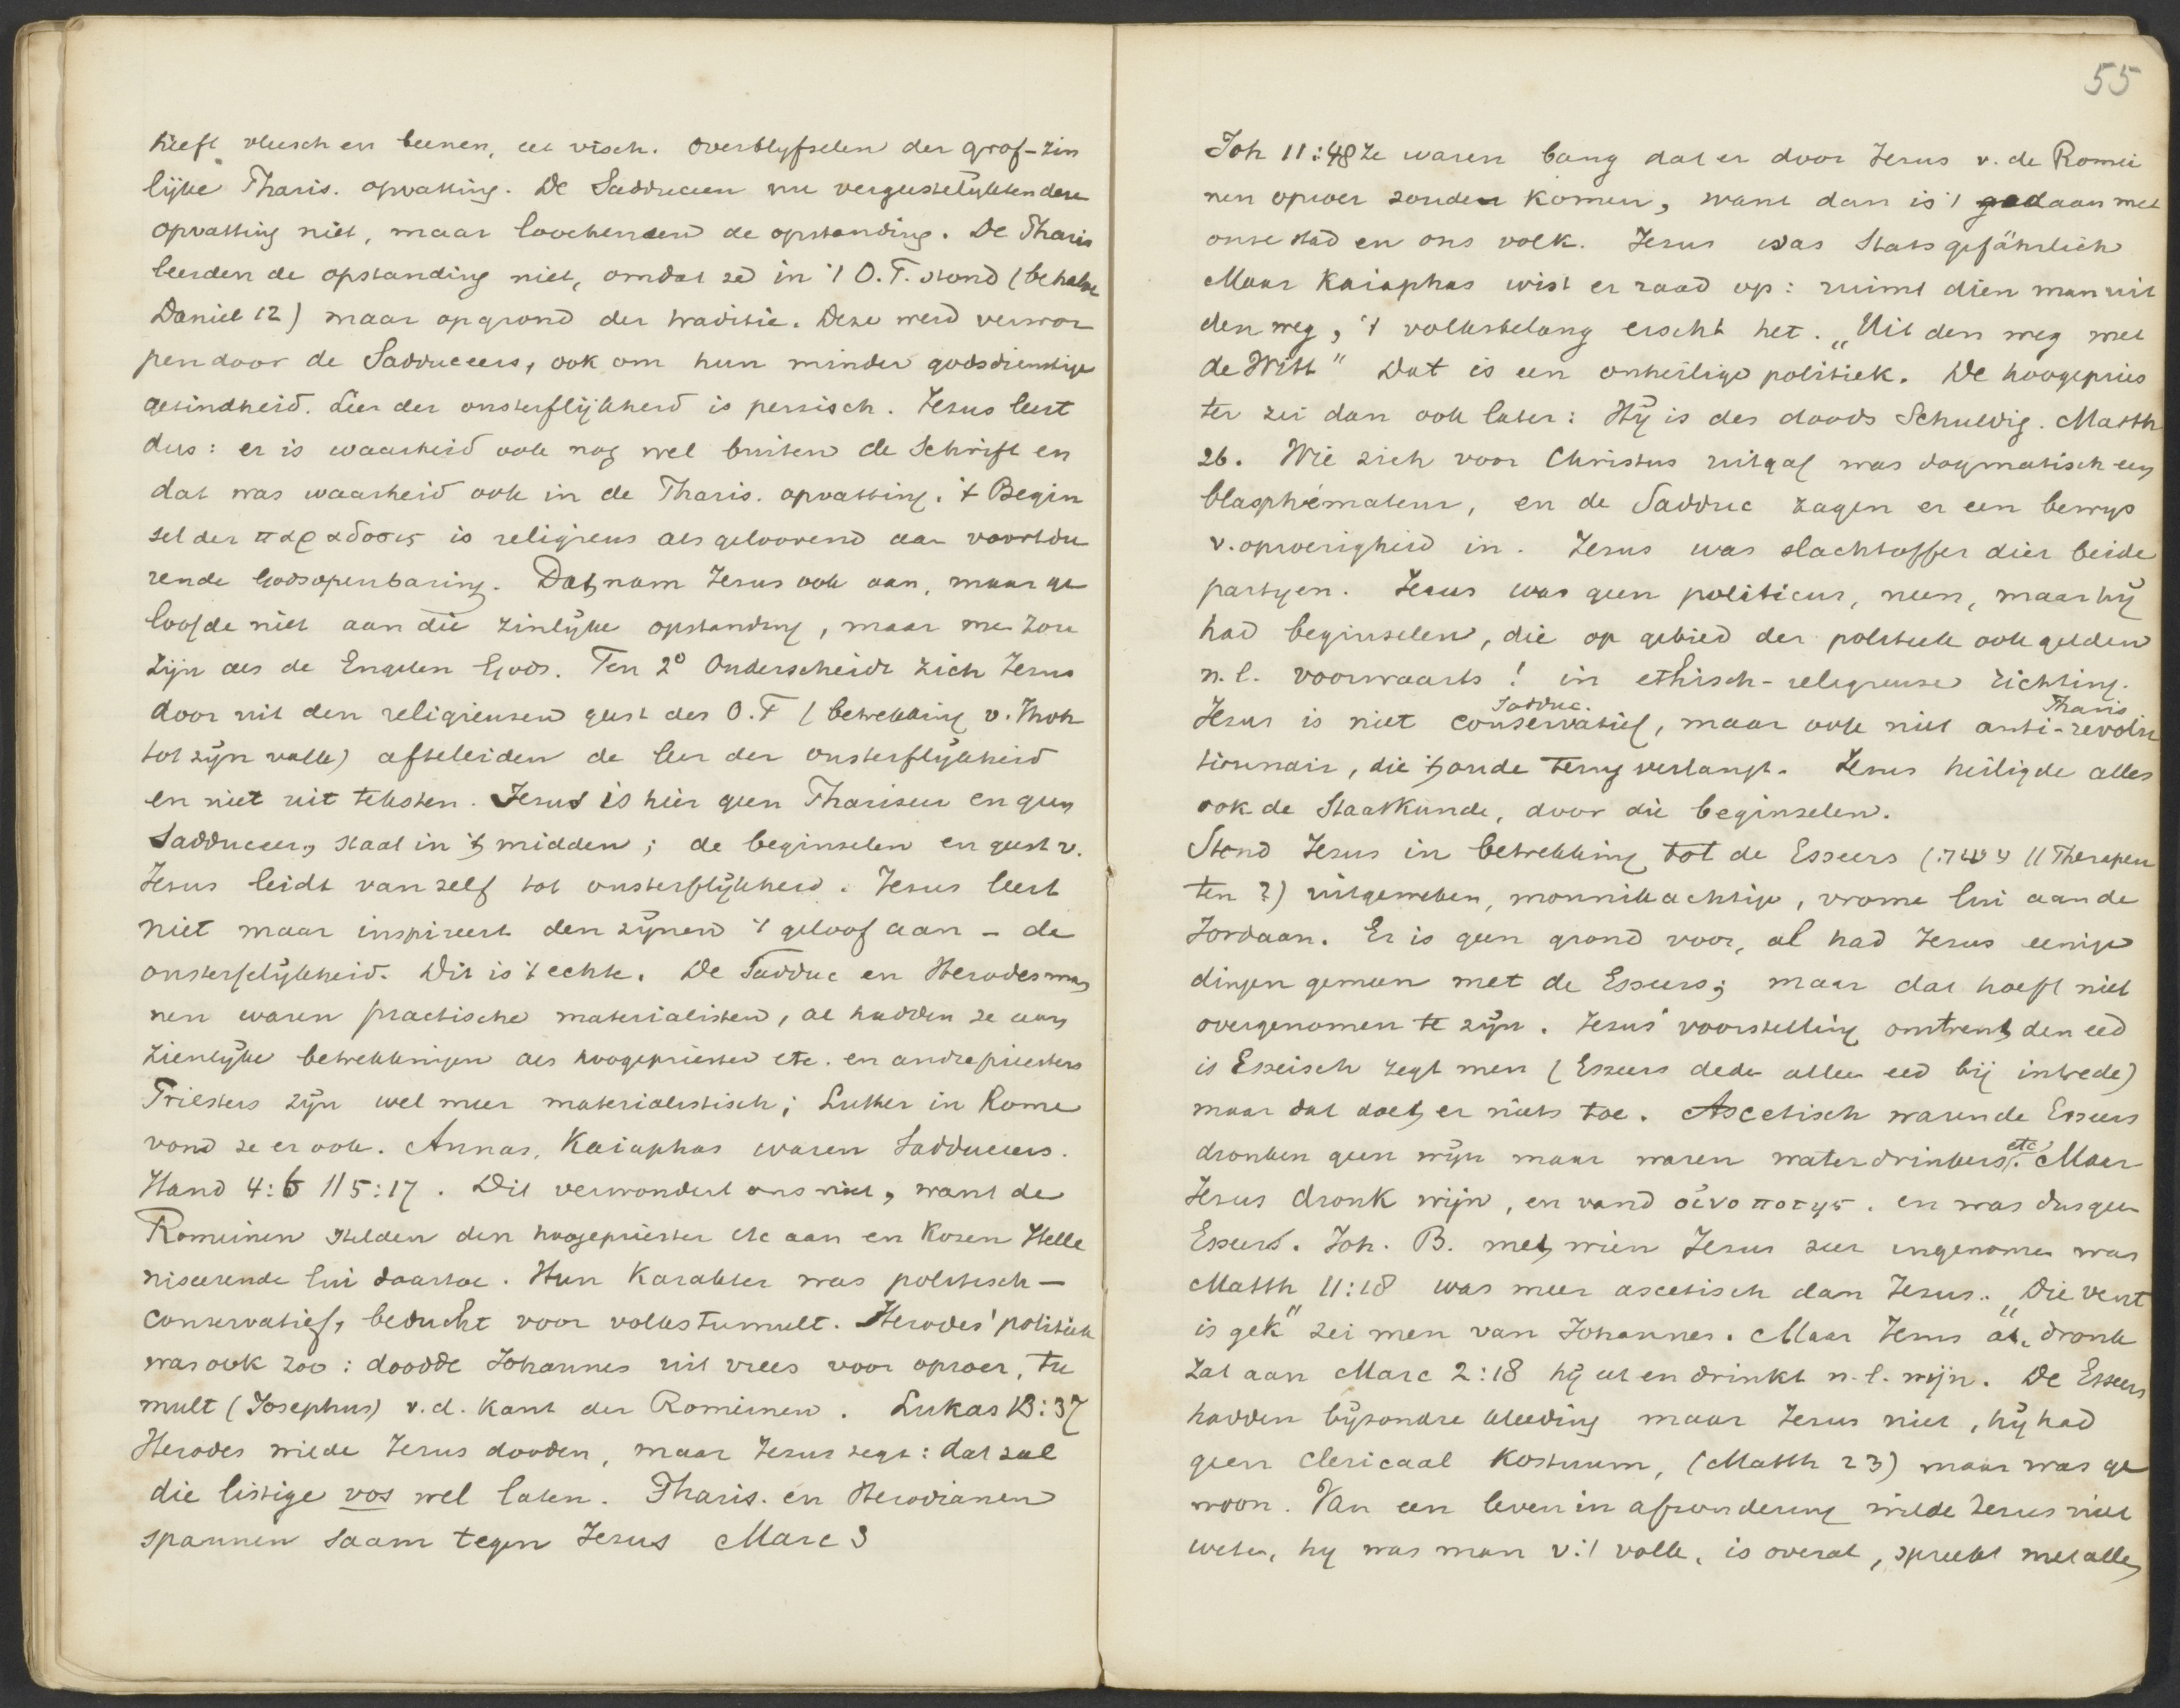 heeft vleesch en beenen, eet visch. Overblyfselen der grof-zin
lijke Pharis. opvatting. De Sadduceen nu vergeestelykten deze
opvatting niet, maar loochenden de opstanding. De Pharis
leerden de opstanding niet, omdat ze in 't O.T. stond (behalve
Daniel 12) maar op grond der traditie. Deze werd verwor
pen door de Sadduceers, ook om hun minder godsdienstige
gezindheid. Leer der onsterflijkheid is persisch. Jezus leert
dus: er is waarheid ook nog wel buiten de Schrift en
dat was waarheid ook in de Pharis. opvatting. 't Begin
sel der παραδοσις is religieus als geloovend aan voortdu
rende Godsopenbaring. Dat nam Jezus ook aan, maar ge
loofde niet aan die zinlijke opstanding, maar me zou
zijn als de Engelen Gods. Ten 2o Onderscheidt zich Jezus
door uit den religieusen geest des O.T (betrekking v. Jhvh
tot zijn volk) afteleiden de leer der onsterflijkheid
en niet uit teksten. Jezus is hier geen Phariseer en geen
Sadduceer, staat in 't midden; de beginselen en geest v.
Jezus leidt van zelf tot onsterflijkheid. Jezus leert
niet maar inspireert den zijnen 't geloof aan - de
onsterfelijkheid. Dit is 't echte. De Sadduc en Herodesman
nen waren practische materialisten, al hadden ze aan
zienlijke betrekkingen als hoogepriester etc. en andre priesters
Priesters zijn wel meer materialistisch; Luther in Rome
vond ze er ook. Annas, Kaiaphas waren Sadduceers.
Hand 4:6 // 5:17. Dit verwondert ons niet, want de
Romeinen stelden den hoogepriester etc aan en kozen Helle
niseerende lui daartoe. Hun karakter was politisch-
conservatief, beducht voor volkstumult. Herodes' politiek
was ook zoo: doodde Johannes uit vrees voor oproer, tu
mult (Josephus) v.d. kant der Romeinen. Lukas 13:37
Herodes wilde Jezus dooden, maar Jezus zegt: dat zal
die listige vos wel laten. Pharis. en Herodianen
spannen saam tegen Jezus Marc 3
55
Joh 11:48 Ze waren bang dat er door Jezus v. de Romei
nen oproer zouden komen, want dan is 't gedaan met
onze stad en ons volk. Jezus was Statsgefährlich
Maar Kaiaphas wist er raad op: ruimt dien man uit
den weg, 't volksbelang eischt het. „Uit den weg met
de Witt" Dat is een onheilige politiek. De hoogepries
ter zei dan ook later: Hij is des doods Schuldig. Matth
26. Wie zich voor Christus uitgaf was dogmatisch een
blasphémateur, en de Sadduc zagen er een bewys
v. oproerigheid in. Jezus was slachtoffer dier beide
partyen. Jezus was geen politicus, neen, maar hij
had beginselen, die op gebied der politiek ook gelden
n.l. voorwaarts! in ethisch-religieuse richting.
Sadduc. Pharis
Jezus is niet conservatief, maar ook niet anti-revolu
tionnair, die 't oude terug verlangt. Jezus heiligde alles
ook de Staatkunde, door die beginselen.
Stond Jezus in betrekking tot de Esseers ( // Therapeu
ten?) uitgeweken, monnikachtige, vrome lui aan de
Jordaan. Er is geen grond voor, al had Jezus eenige
dingen gemeen met de Esseers; maar dat hoeft niet
overgenomen te zijn. Jezus' voorstelling omtrent den eed
is Esseisch zegt men (Esseers deden alleen eed bij intrede)
maar dat doet er niets toe. Ascetisch waren de Esseers
dronken geen wijn maar waren waterdrinkers etc. Maar
Jezus dronk wijn, en vond οινοποτης. en was dus geen
Esseers. Joh. B. met wien Jezus zeer ingenomen was
Matth 11:18 was meer ascetisch dan Jezus. „Die vent
is gek" zei men van Johannes. Maar Jezus at, dronk
zat aan Marc 2:18 hij eet en drinkt n.l. wijn. De Esseers
hadden bijzondre kleeding maar Jezus niet, hij had
geen clericaal Kostuum, (Matth 23) maar was ge
woon. Van een leven in afzondering wilde Jezus niet
weten, hy was man v. 't volk, is overal, spreekt met allen